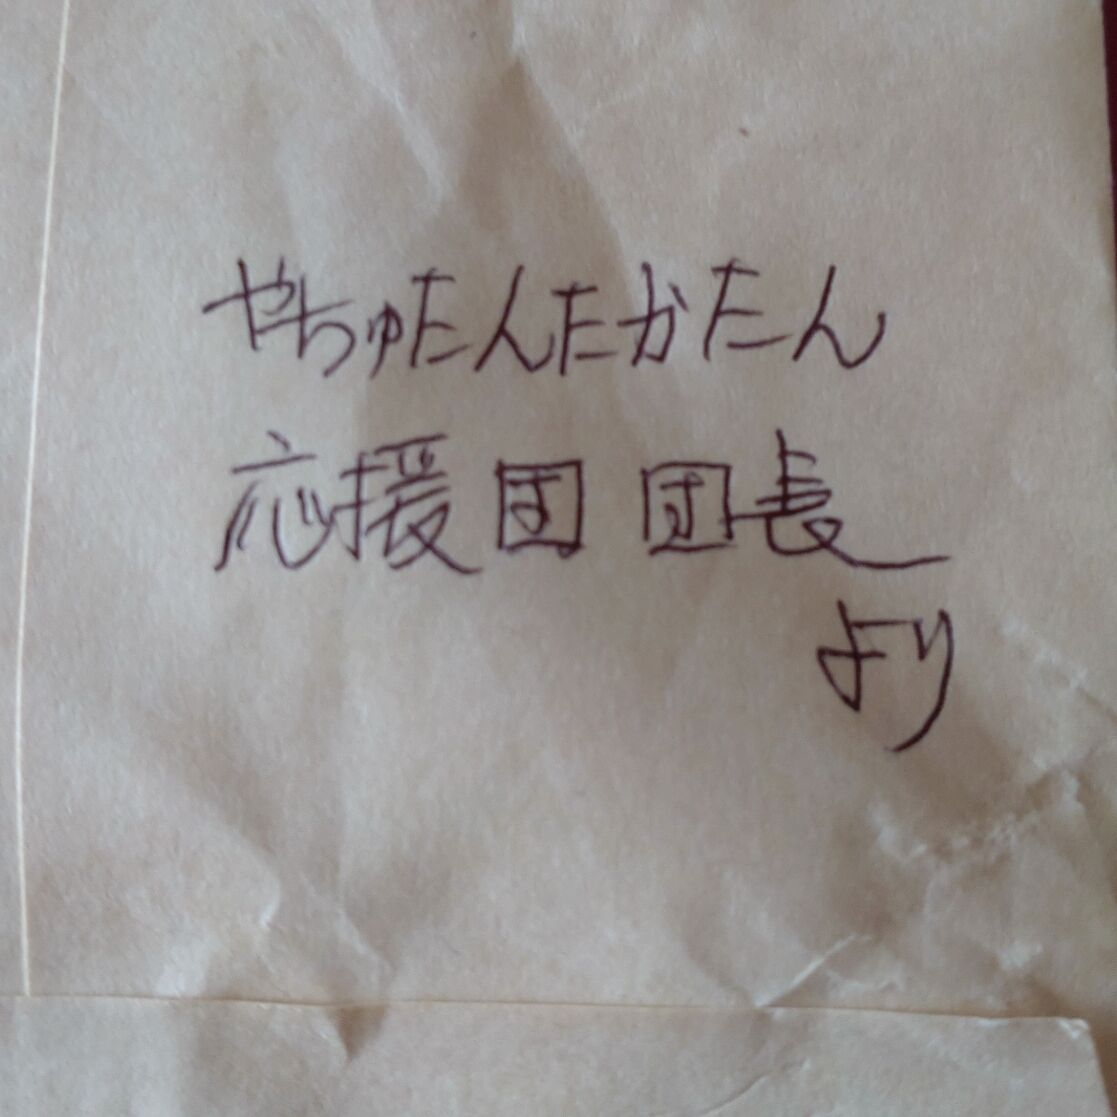 やちゅたんたかたん
応援団 団長
より